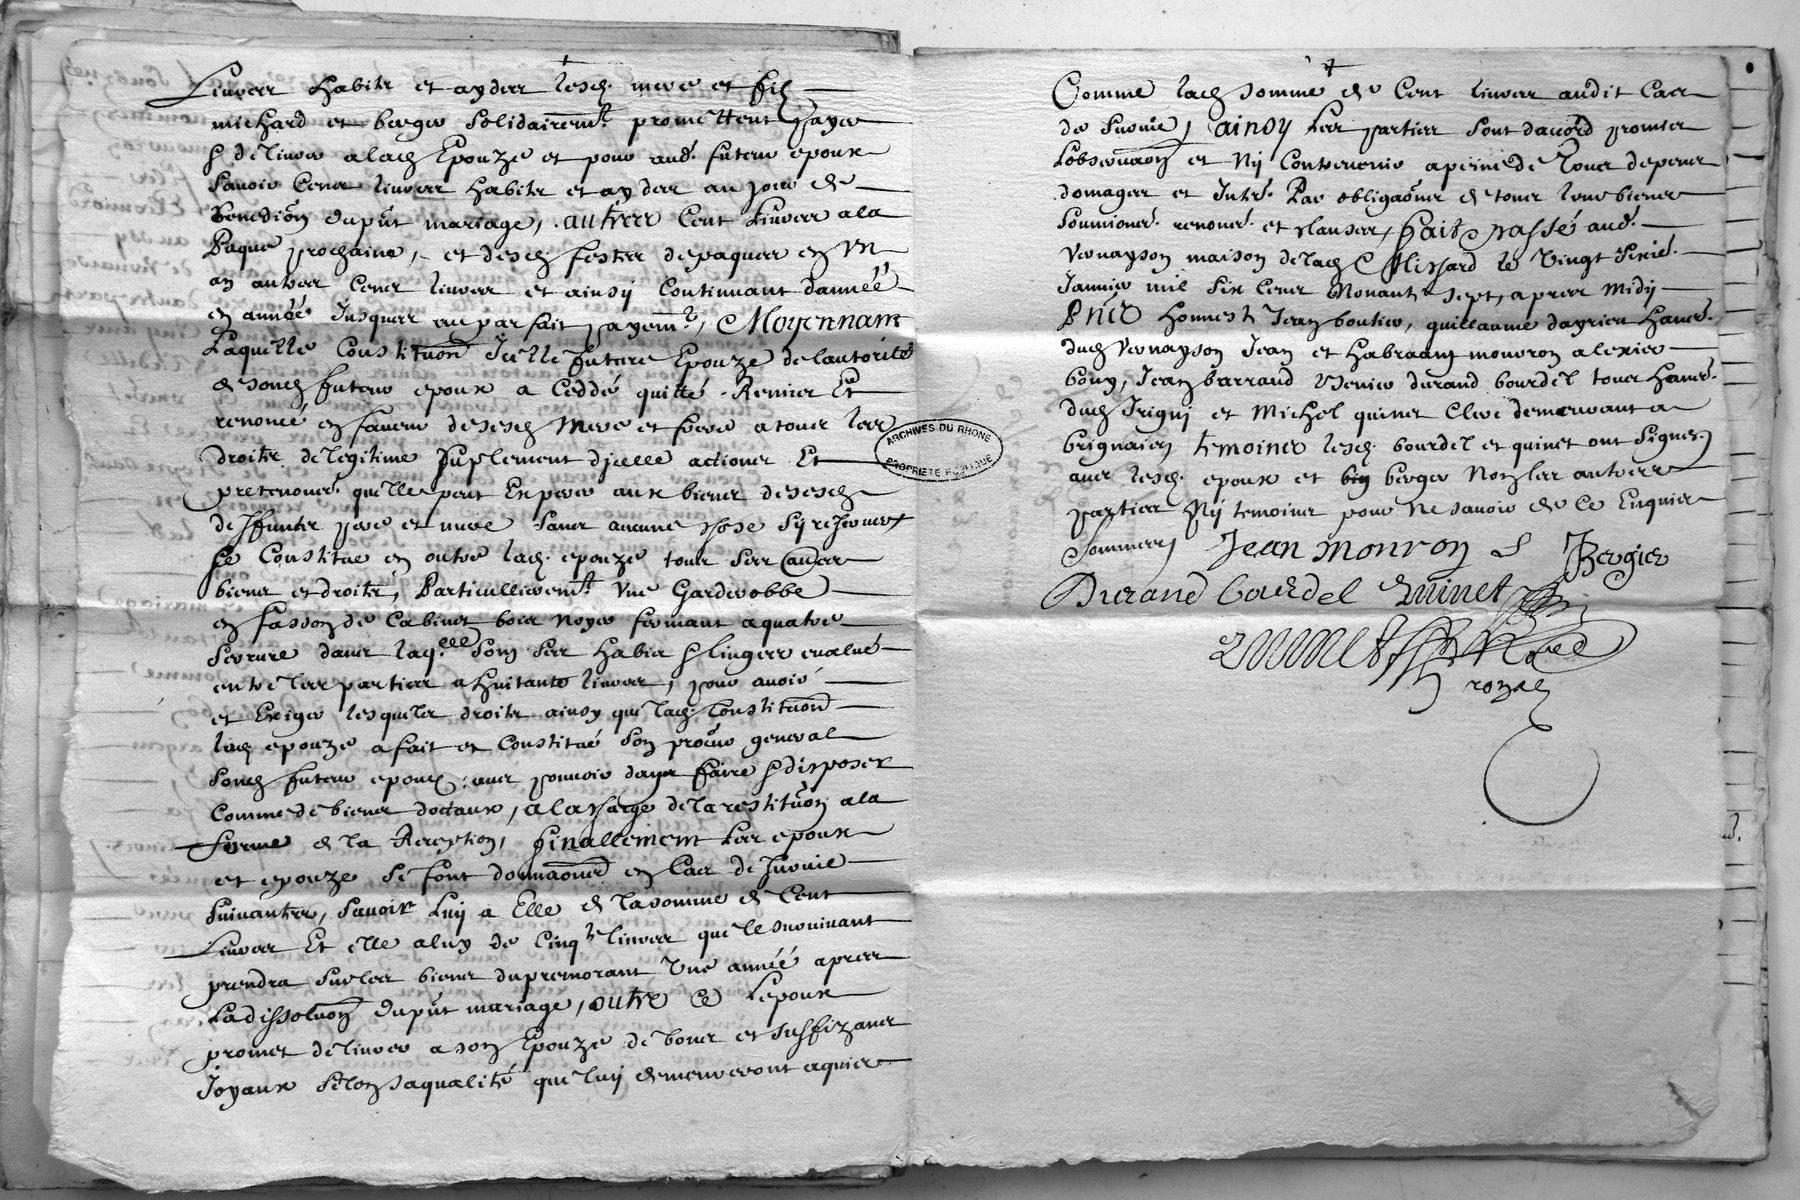 Livres habits et ayder lesd. mere et fils
michard et berger solidairemt. promettent payer
& delivrer a lad. Epouze et pour aud. futeur epoux
savoir Cens livres habits et ayder au jour de
Benedion dupnt mariage, autres Cent Livres a la
Paque prochaine, et desd. festes de paques en Un
an autres Cens livres et ainsy Continuant dannéé
en annéé Jusques au parfait payemt., Moyennant
Laquelle Constituon Jcelle future Epouze de lautorité
de sond. futeur epoux a Ceddé quitté Remier Et
renoncé en faveur de sesd. Mere et frere a tous les
droits de legitime suplement dicelle actions Et
pretentions quelle peut Esperer aux biens de sesd.
deffunts pere et mere sans aucune chose sy reserver
se Constitue en outre lad. epouze tous ses autres
biens et droits, Particullieremt. Une Garderobbe
en fasson de Cabinet bois noyer fermant a quatre
serrure dans laqelle. sont ses habis & linges evalué
entre les parties a huitante livres, pour avoir
et Exiger lesquels droits ainsy que lad. Constituon
lad. epouze a fait et Constitué son procur general
sond. futeur epoux avec pouvoir dagir faire & disposer
Comme de biens dotaux, a la charge de la restituon a la
forme de la Reception, finallement Les epoux
et epouze se font donnaons en Cas de survie
suivantes, savoir Luy a Elle de la somme de Cent
Livres Et elle a luy de Cinqte. livres que le survivant
prendra sur les biens du premorant Une annéé apres
La dissoluon dupnt mariage, outre Ce Lepoux
promet delivrer a son Epouze de bons et suffizans
Joyaux selon sa qualité que luy demeureront aquis
Comme lad. somme de Cent livres audit Cas
de survie, ainsy Les parties sont daccord promis
Lobservaon et Ny Contrevenir a peine de tous depens
domages et Jntrs. Par obligaons de tous leurs biens
soumions. renons. et clauses, fait & passé aud.
Vernayson maison de lad. Clissard le Vingt sixie.
Janvier mil six Cens Nonante sept, apres Midy
Pnts honnests Jean boutier, guillaume dayrieu habts.
dud. Vernayson Jean et habraam monron alexier
bony, Jean barraud durand bourdel tous habts.
dud. Jrigny et Michel quinet Clerc demeurant a
brignaien temoins lesd. bourdel et quinet ont signes
avec lesd. epoux et berger Non les autres
parties Ny temoins pour Ne savoir de Ce Enquis
Sommeri Jean monron Bergier
Durand bourdel Quinet
royal
ARCHIVES DU RHONE
PROPRIETE PUBLIQUE